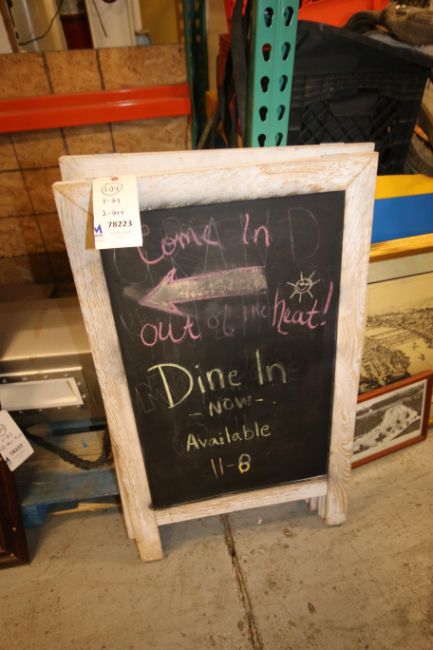 104
8-21
78223
Come In
out of the heat!
Dine In
- NOW -
Available
11-8
78222